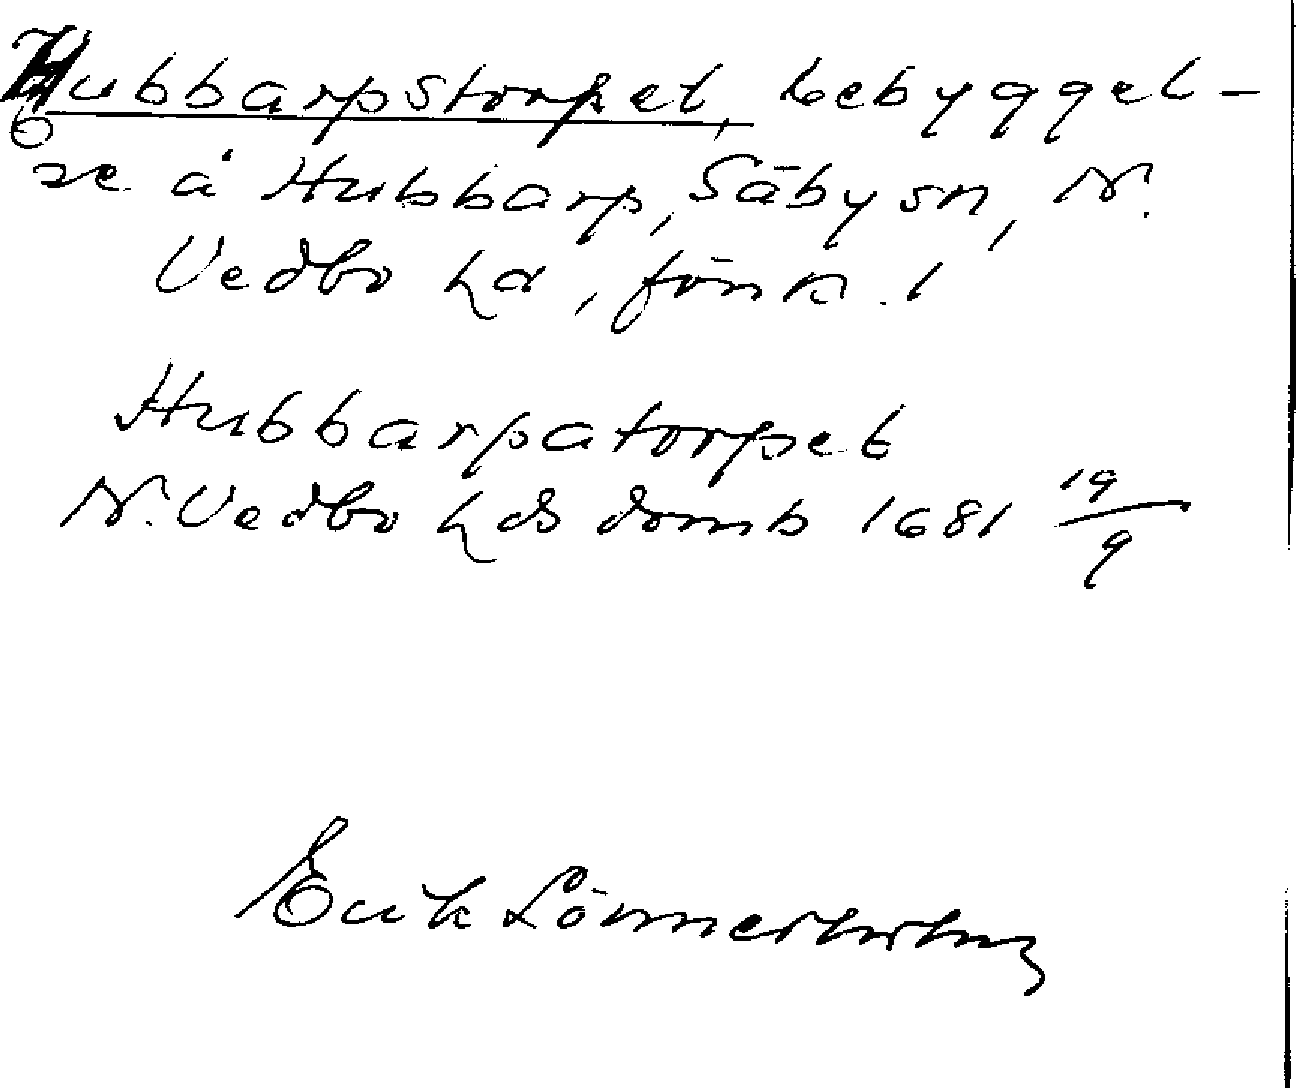 Hubbarpstorpet, bebyggel-
se å Hubbarp, Säby sn, N.
Vedbo hd, Jönk. l
Hubbarpatorpet
N. Vedbo hds domb 1681 19/9
Erik Lönnerholm